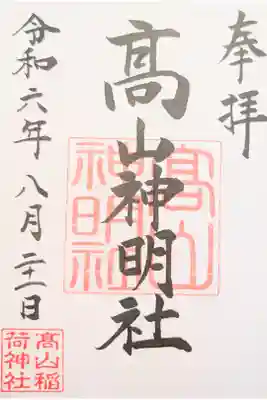 奉拝
髙山神明社
髙山神明社
令和六年八月二十一日
髙山稲荷神社